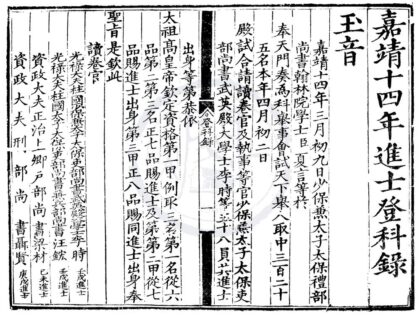 嘉靖十四年進士登科錄
玉音
嘉靖十四年三月初九日少保兼太子太保禮部
尚書翰林院學士臣夏言等於
奉天門奏爲科舉事會試天下舉人取中三百二十
五名本年四月初二日
殿試合請讀卷官及執事等官少保兼太子太保吏
部尚書武英殿大學士李時等五十八員其進士
出身等第恭依
太祖高皇帝欽定資格第一甲例取三名第一名從六
品第二第三名正七品賜進士及第第二甲從七
品賜進士出身第三甲正八品賜同進士出身奉
聖旨是欽此
讀卷官
光祿大夫柱國少保兼太子太保吏部尚書武英殿大學士李時 壬戌進士
光祿大夫柱國太子太保吏部尚書兼兵部尚書汪鋐 壬戌進士
資政大夫正治上卿戶部尚書梁材 己未進士
資政大夫刑部尚書聶賢 庚戌進士